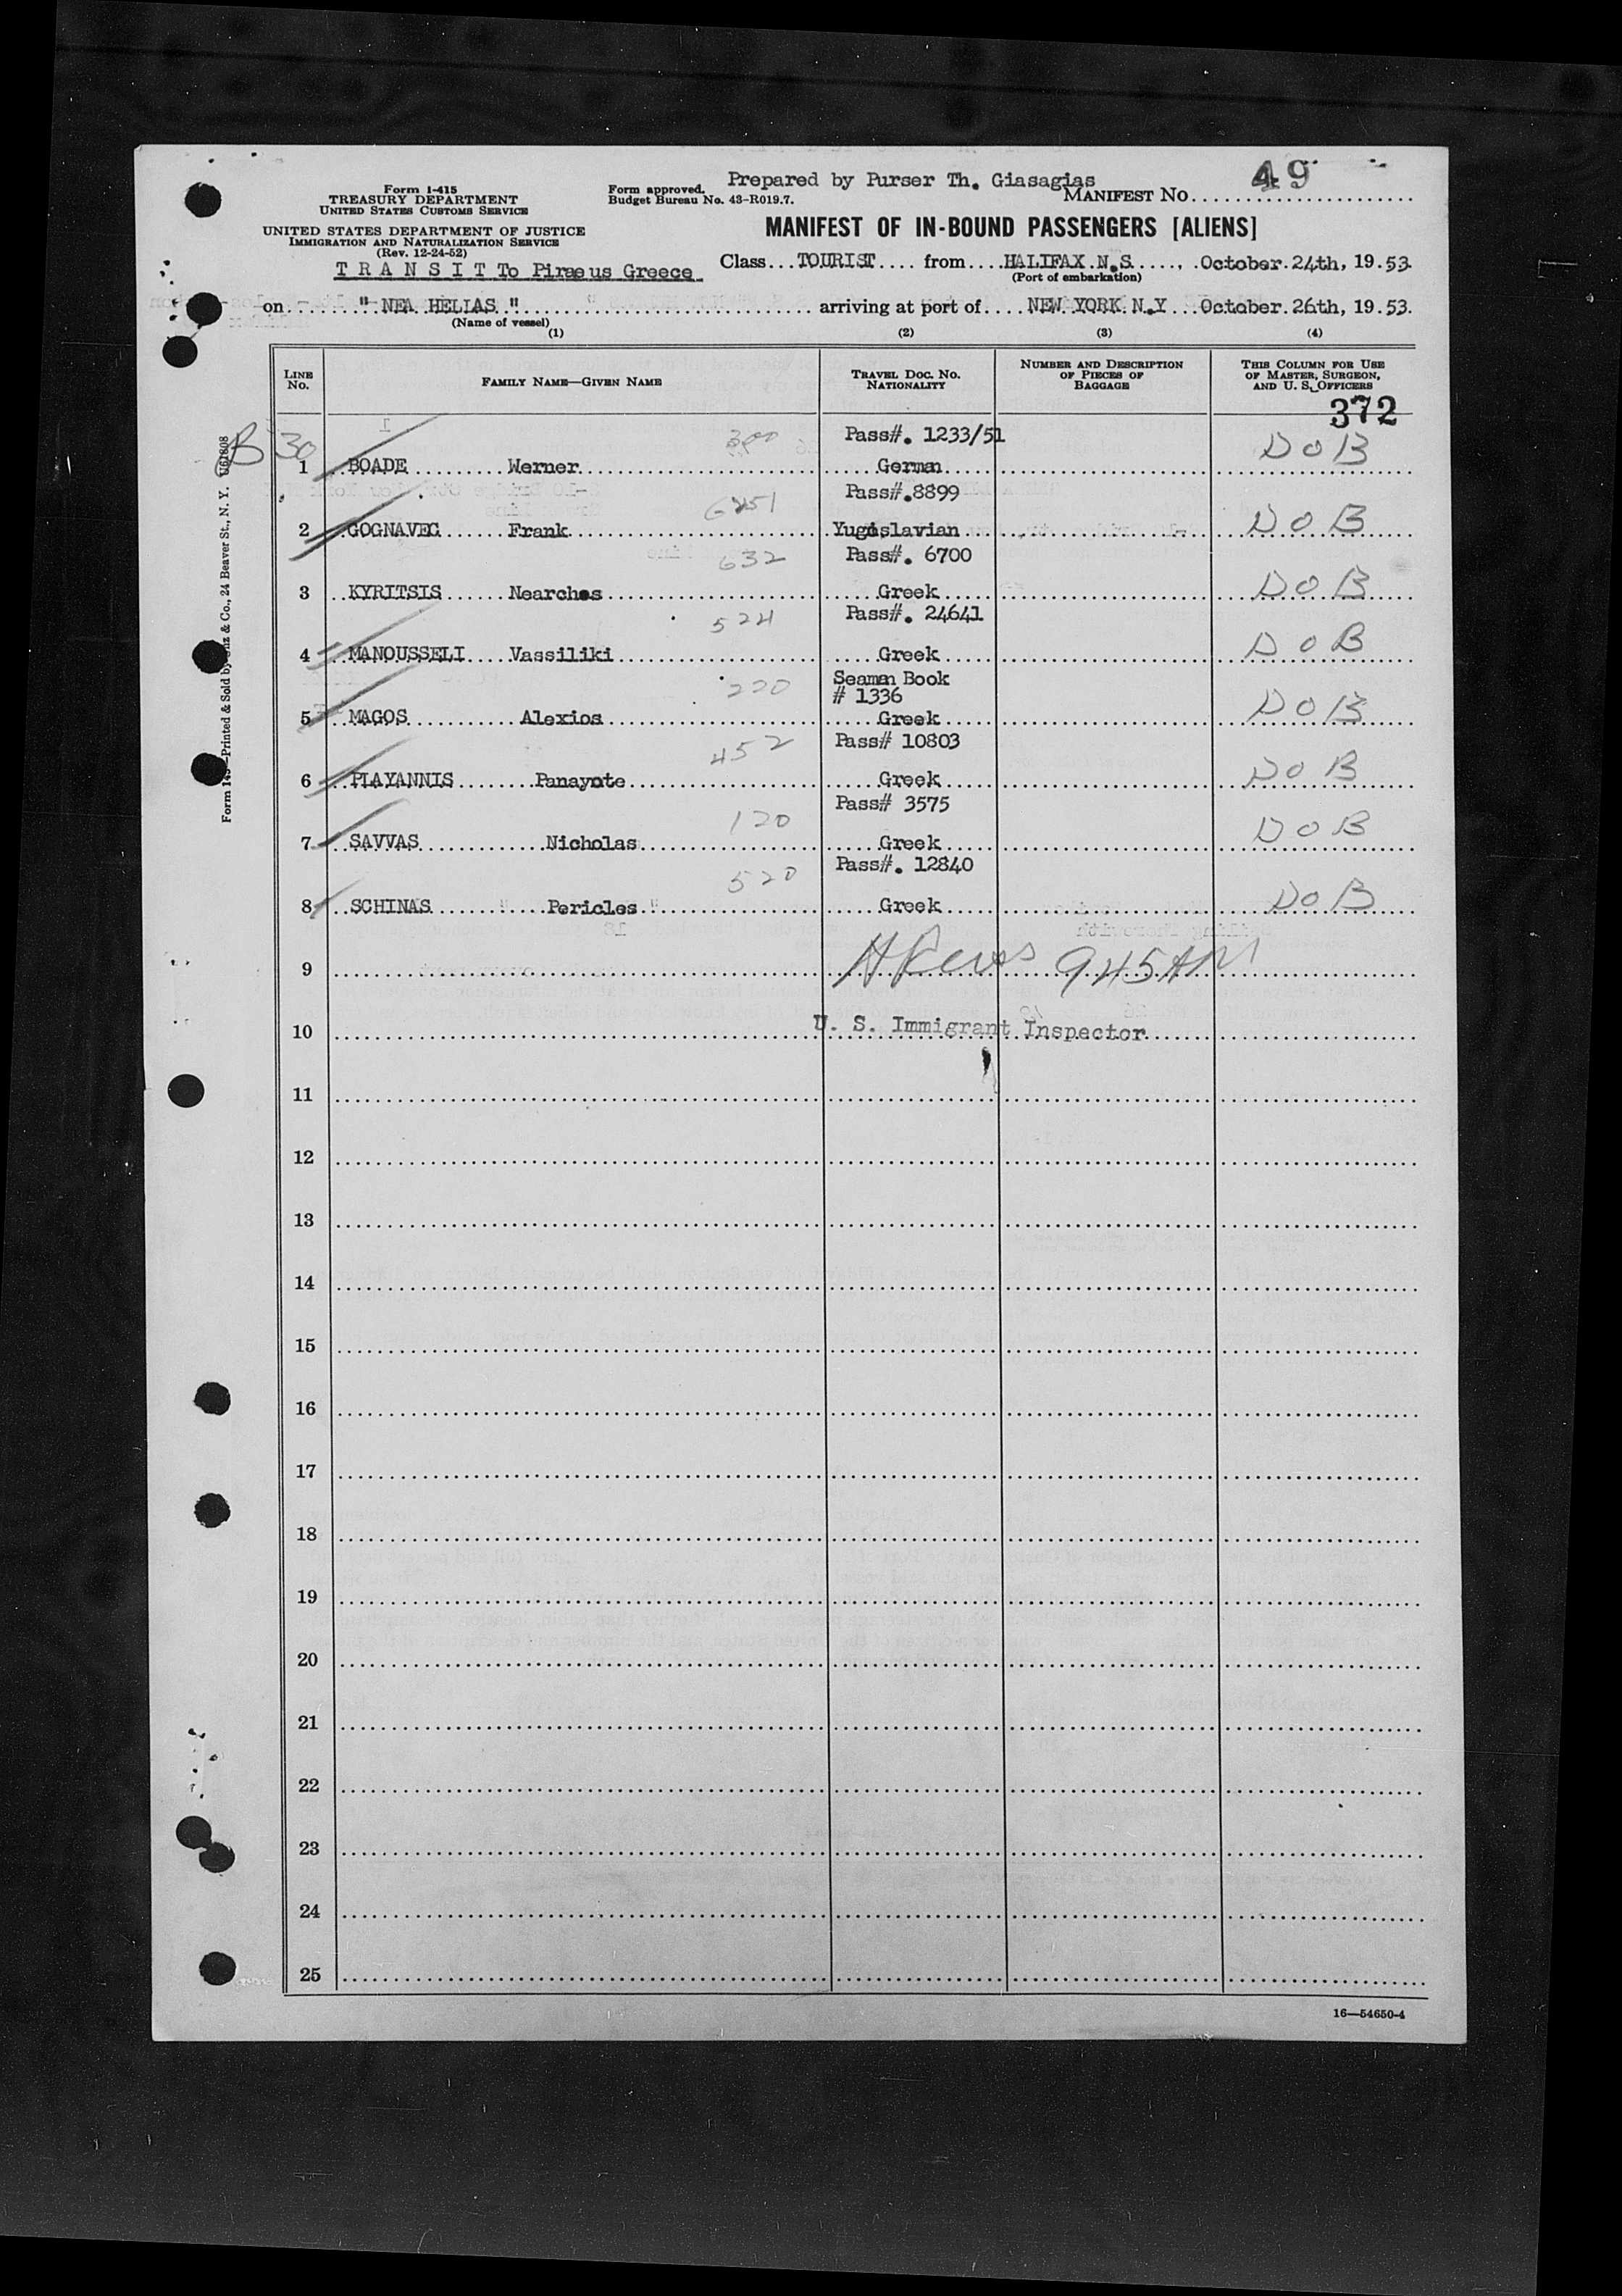 Prepared by Purser Th. Giasagias
49
Form I-415
TREASURY DEPARTMENT
UNITED STATES CUSTOMS SERVICE
Form approved.
Budget Bureau No. 43-R019.7.
MANIFEST NO.
UNITED STATES DEPARTMENT OF JUSTICE
IMMIGRATION AND NATURALIZATION SERVICE
(Rev. 12-24-52)
MANIFEST OF IN-BOUND PASSENGERS [ALIENS]
T R A N S I T To Piraeus Greece
Class TOURIST from HALIFAX N.S., October 24th, 1953
(Port of embarkation)
on " NEA HELIAS " arriving at port of NEW YORK N.Y October 26th, 1953.
(Name of vessel)
(1) (2) (3) (4)
LINE NO.
FAMILY NAME—GIVEN NAME
TRAVEL DOC. NO. NATIONALITY
NUMBER AND DESCRIPTION OF PIECES OF BAGGAGE
THIS COLUMN FOR USE OF MASTER, SURGEON, AND U. S. OFFICERS
372
B 30
300 Pass#. 1233/51 DOB
1 BOADE Werner German
Pass#.8899
2 GOGNAVEC Frank Yugoslavian DOB
632 Pass#. 6700
3 KYRITSIS Nearchos Greek DOB
524 Pass#. 24641
4 MANOUSSELI Vassiliki Greek DOB
220 Seaman Book
# 1336
5 MAGOS Alexios Greek DOB
452 Pass# 10803
6 PLAYANNIS Panayote Greek DOB
120 Pass# 3575
7 SAVVAS Nicholas Greek DOB
520 Pass#. 12840
8 SCHINAS " Pericles " Greek DOB
9 945 AM
10 U. S. Immigrant Inspector
11
12
13
14
15
16
17
18
19
20
21
22
23
24
25
16—54650-4